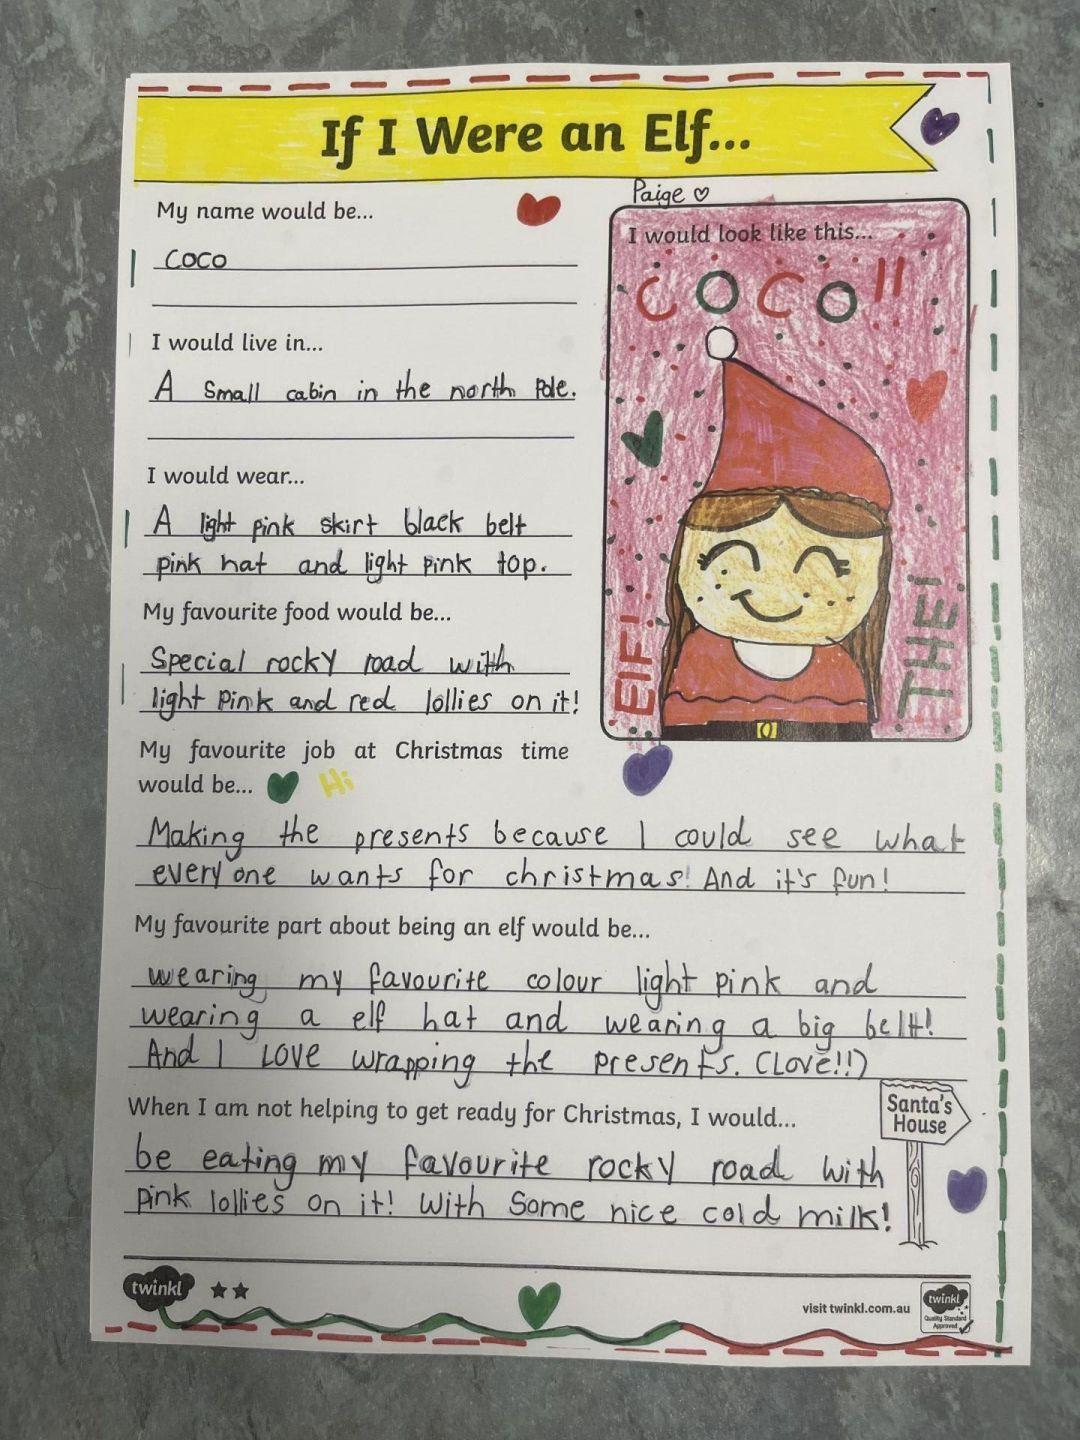 If I Were an Elf...
Paige
My name would be...
coco
I would live in...
A small cabin in the north Pole.
I would wear...
A light pink skirt black belt
pink hat and light pink top.
My favourite food would be...
Special rocky road with
light Pink and red lollies on it!
I would look like this...
COCO!!
Elf!
THE!
My favourite job at Christmas time
would be...
Hi
Making the presents because I could see what
every one wants for christmas! And it's fun!
My favourite part about being an elf would be...
wearing my favourite colour light pink and
wearing a elf hat and wearing a big belt!
And I LOVE wrapping the presents. (Love!!)
When I am not helping to get ready for Christmas, I would...
Santa's
House
be eating my favourite rocky road with
pink lollies on it! With some nice cold milk!
twinkl
visit twinkl.com.au
twinkl
Quality Standard
Approved